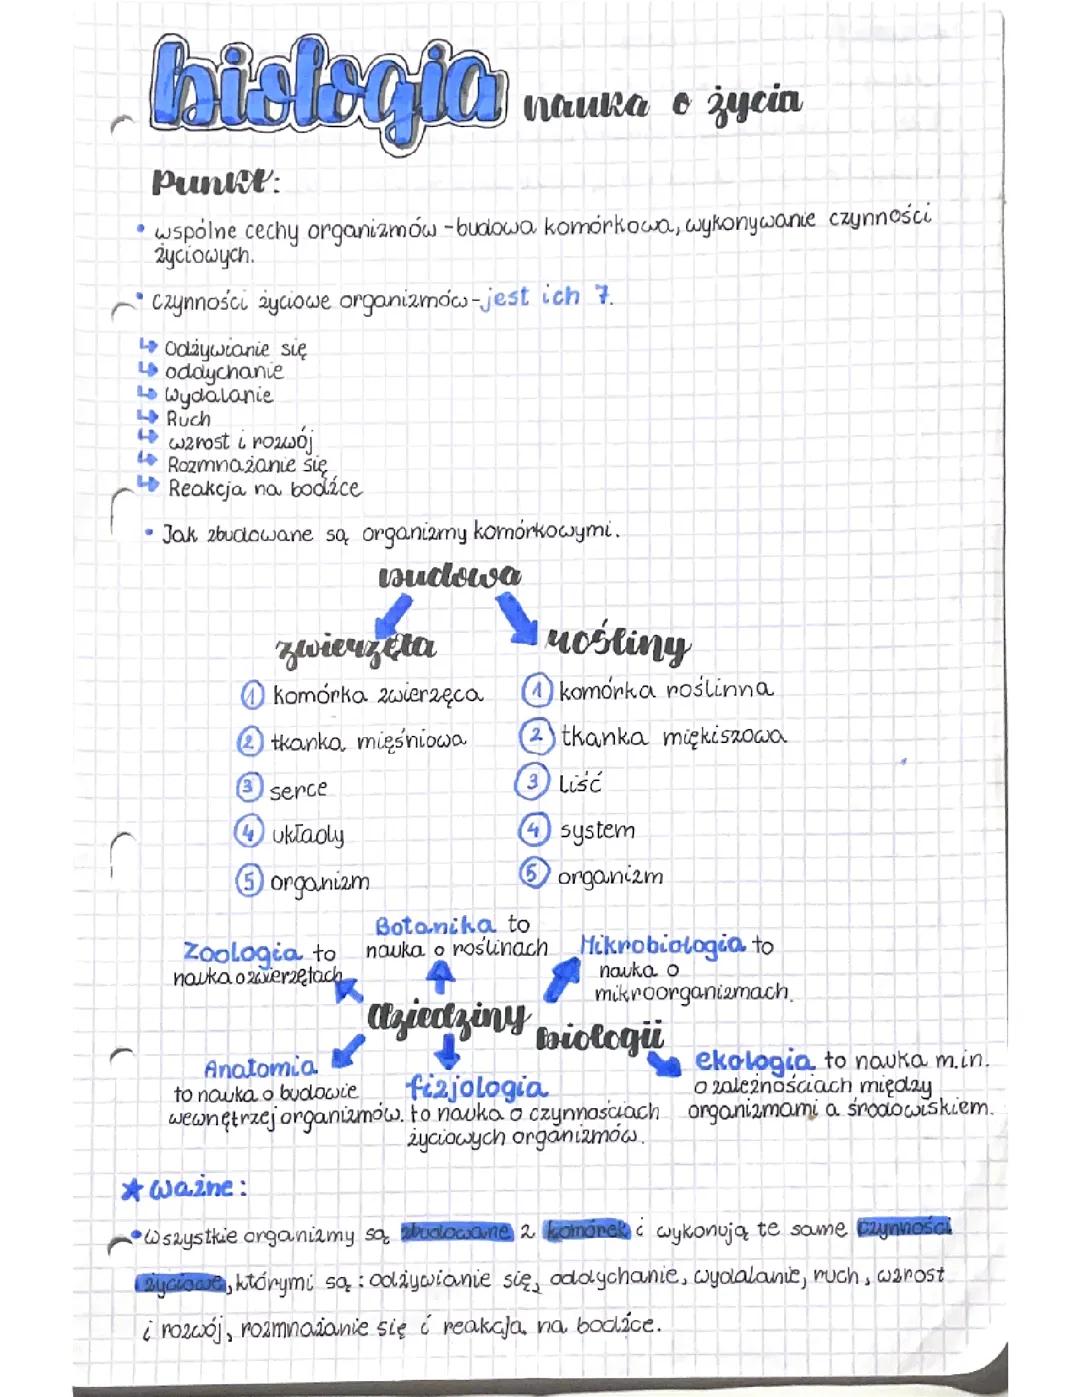 biologia nauka o życiu
Punkt:
• wspólne cechy organizmów - budowa komórkowa, wykonywanie czynności
życiowych.
• czynności życiowe organizmów - jest ich 7.
↳ Odżywianie się
↳ oddychanie
↳ Wydalanie
↳ Ruch
↳ wzrost i rozwój
↳ Rozmnażanie się
↳ Reakcja na bodźce
• Jak zbudowane są organizmy komórkowymi.
Budowa
zwierzęta
① komórka zwierzęca
② tkanka mięśniowa
③ serce
④ układy
⑤ organizm
rośliny
① komórka roślinna
② tkanka miękiszowa
③ liść
④ system
⑤ organizm
Zoologia to
nauka o zwierzętach
Botanika to
nauka o roślinach
Mikrobiologia to
nauka o
mikroorganizmach.
dziedziny biologii
Anatomia
to nauka o budowie
wewnętrzej organizmów.
fizjologia
to nauka o czynnościach
życiowych organizmów.
ekologia to nauka m.in.
o zależnościach między
organizmami a środowiskiem.
★ Ważne:
• Wszystkie organizmy są zbudowane z komórek i wykonują te same czynności
życiowe, którymi są: odżywianie się, oddychanie, wydalanie, ruch, wzrost
i rozwój, rozmnażanie się i reakcja na bodźce.